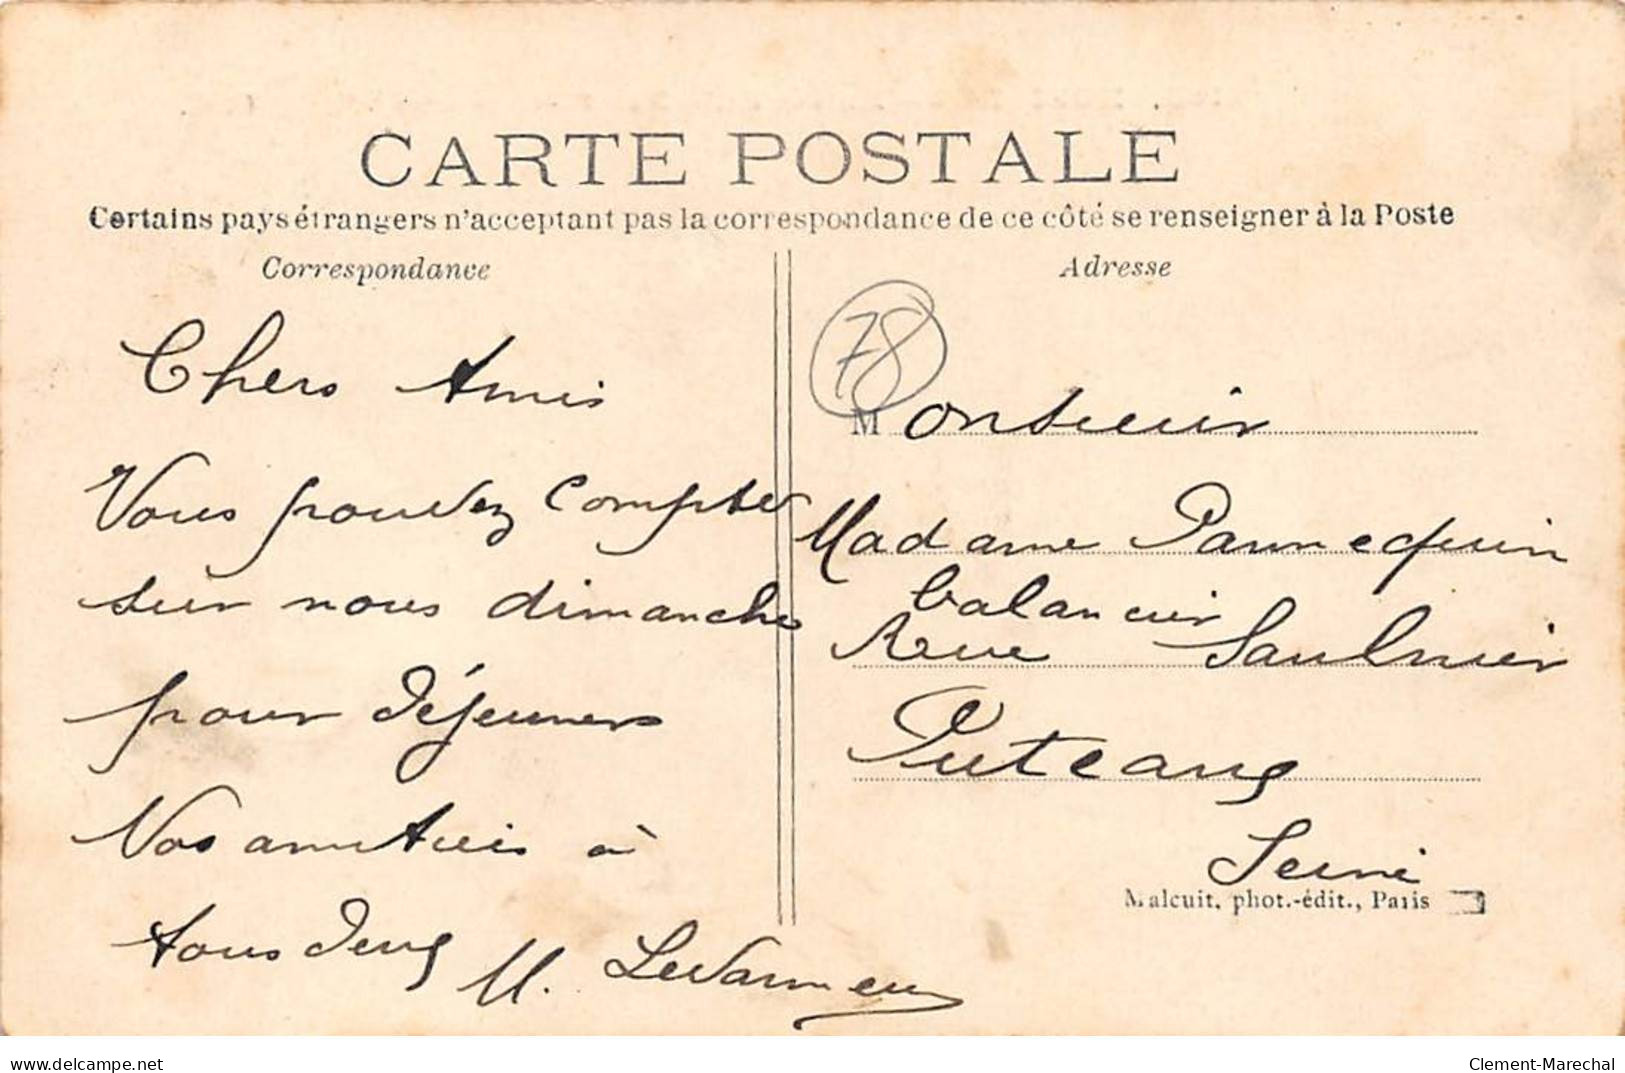 CARTE POSTALE
Certains pays étrangers n'acceptant pas la correspondance de ce côté se renseigner à la Poste
Correspondance
Chers Amis
Vous pouvez compter
sur nous dimanche
pour déjeuners
Nos amitiées à
tous deux M.
Adresse
78
Monsieur
Madame Pannequin
balancier
Rue Saulnier
Puteaux
Seine
Malcuit, phot.-édit., Paris
delcampe.net
Clement-Marechal